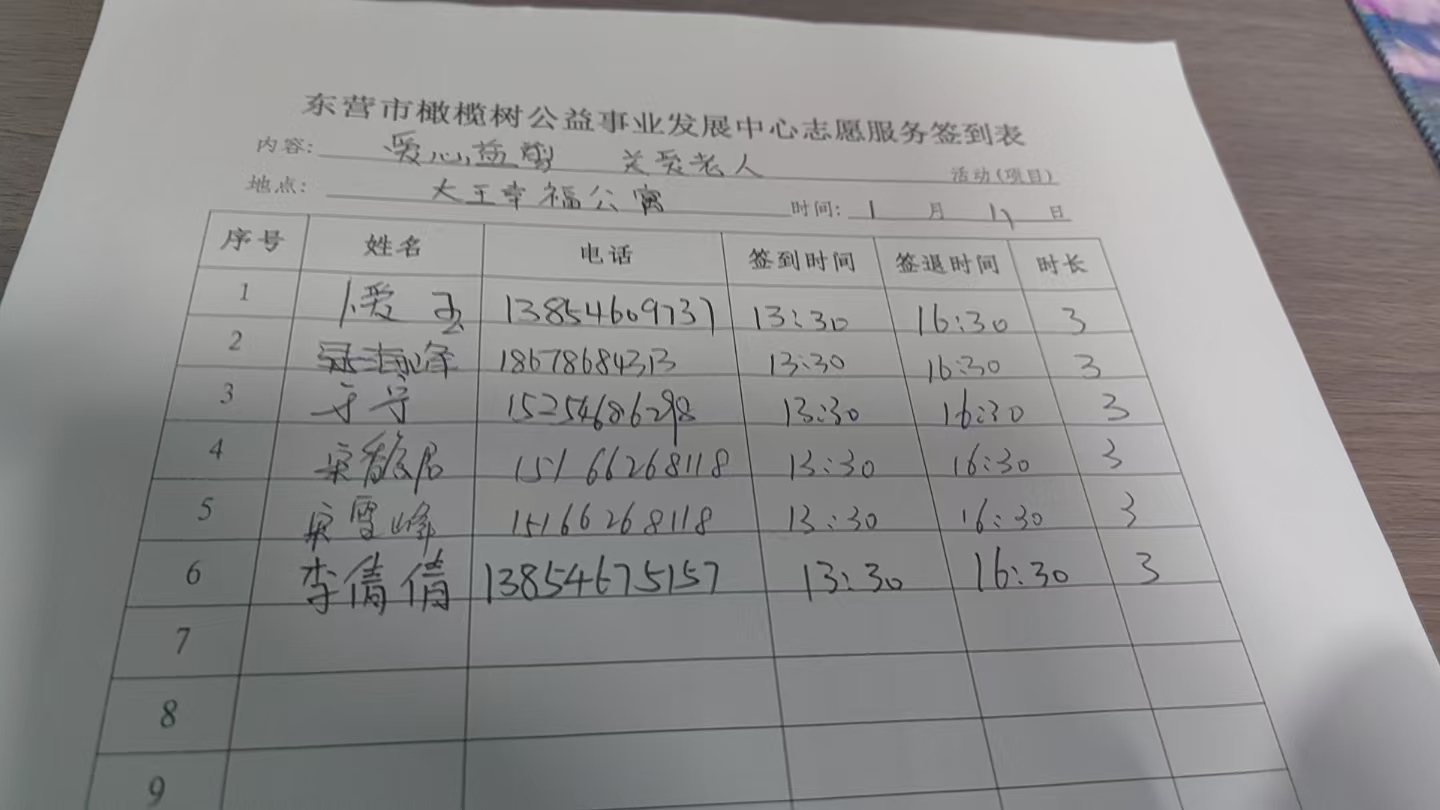 东营市橄榄树公益事业发展中心志愿服务签到表
内容: 爱心益剪 关爱老人 活动(项目)
地点: 大王幸福公寓 时间: 1 月 日
序号 姓名 电话 签到时间 签退时间 时长
1 卜爱玉 13854609737 13:30 16:30 3
2 18678684313 13:30 16:30 3
3 于宁 15254686298 13:30 16:30 3
4 15166268118 13:30 16:30 3
5 雪峰 15166268118 13:30 16:30 3
6 李倩倩 13854675157 13:30 16:30 3
7
8
9